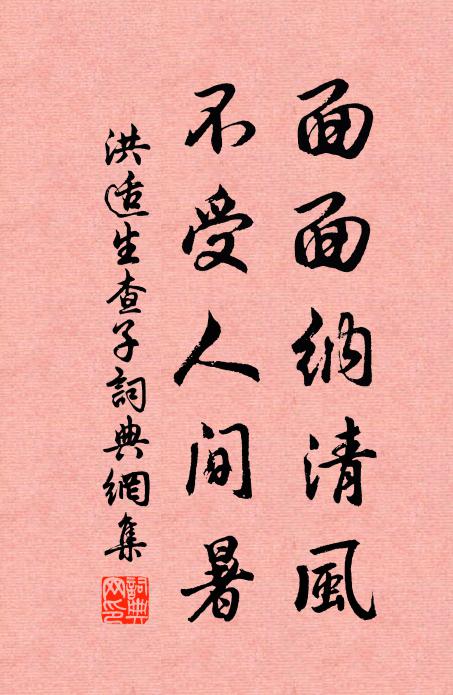 面面納清風
不受人间暑
洪适生查子詞典網集
詞典網印